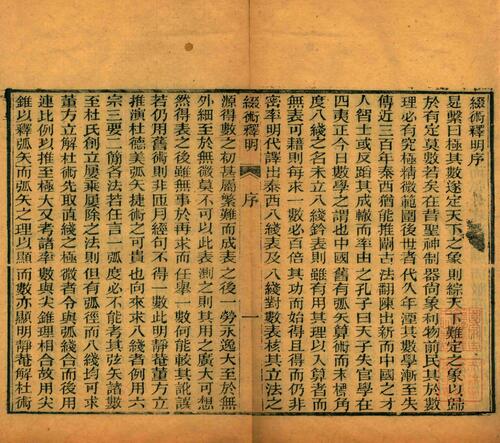 綴術釋明序
易繫曰極其數遂定天下之象則綜天下難定之象以歸
於有定莫數若矣在昔聖神制器尚象利物前民其於數
理必有究極精微範圍後世者代久年湮其數學漸至失
傳近三百年泰西猶能推闡古法翻陳出新而中國之才
人智士或反蹈其成轍而率由之孔子曰天子失官學在
四夷正今日數學之謂也中國舊有弧矢算術而未標角
度八綫之名未立八綫鈐表則雖有用其理以入算者而
無表可藉則每求一數必百倍其功而始得且得而仍非
密率明代譯出泰西八綫表及八綫對數表核其立法之
綴術釋明
序
一
源得數之初甚屬繁難而成表之後一勞永逸大至於無
外細至於無微莫不可以此表測之則其用之廣大可想
然得表之後雖無事於再求而任舉一數何能較其訛誤
若仍用舊術則非匝月經旬不得一數此明靜菴董方立
推演杜德美弧矢捷術之可貴也向來求八綫者例用六
宗三要二簡各法若任言一弧度必不能考其弦矢諸數
至杜氏創立屢乘屢除之法則但有弧徑而八綫均可求
董方立解杜術先取直綫之極微者令與弧綫合而後用
連比例以推至極大又考諸率數與尖錐理相合故用尖
錐以釋弧矢而弧矢之理以顯而數亦顯明靜菴解杜術